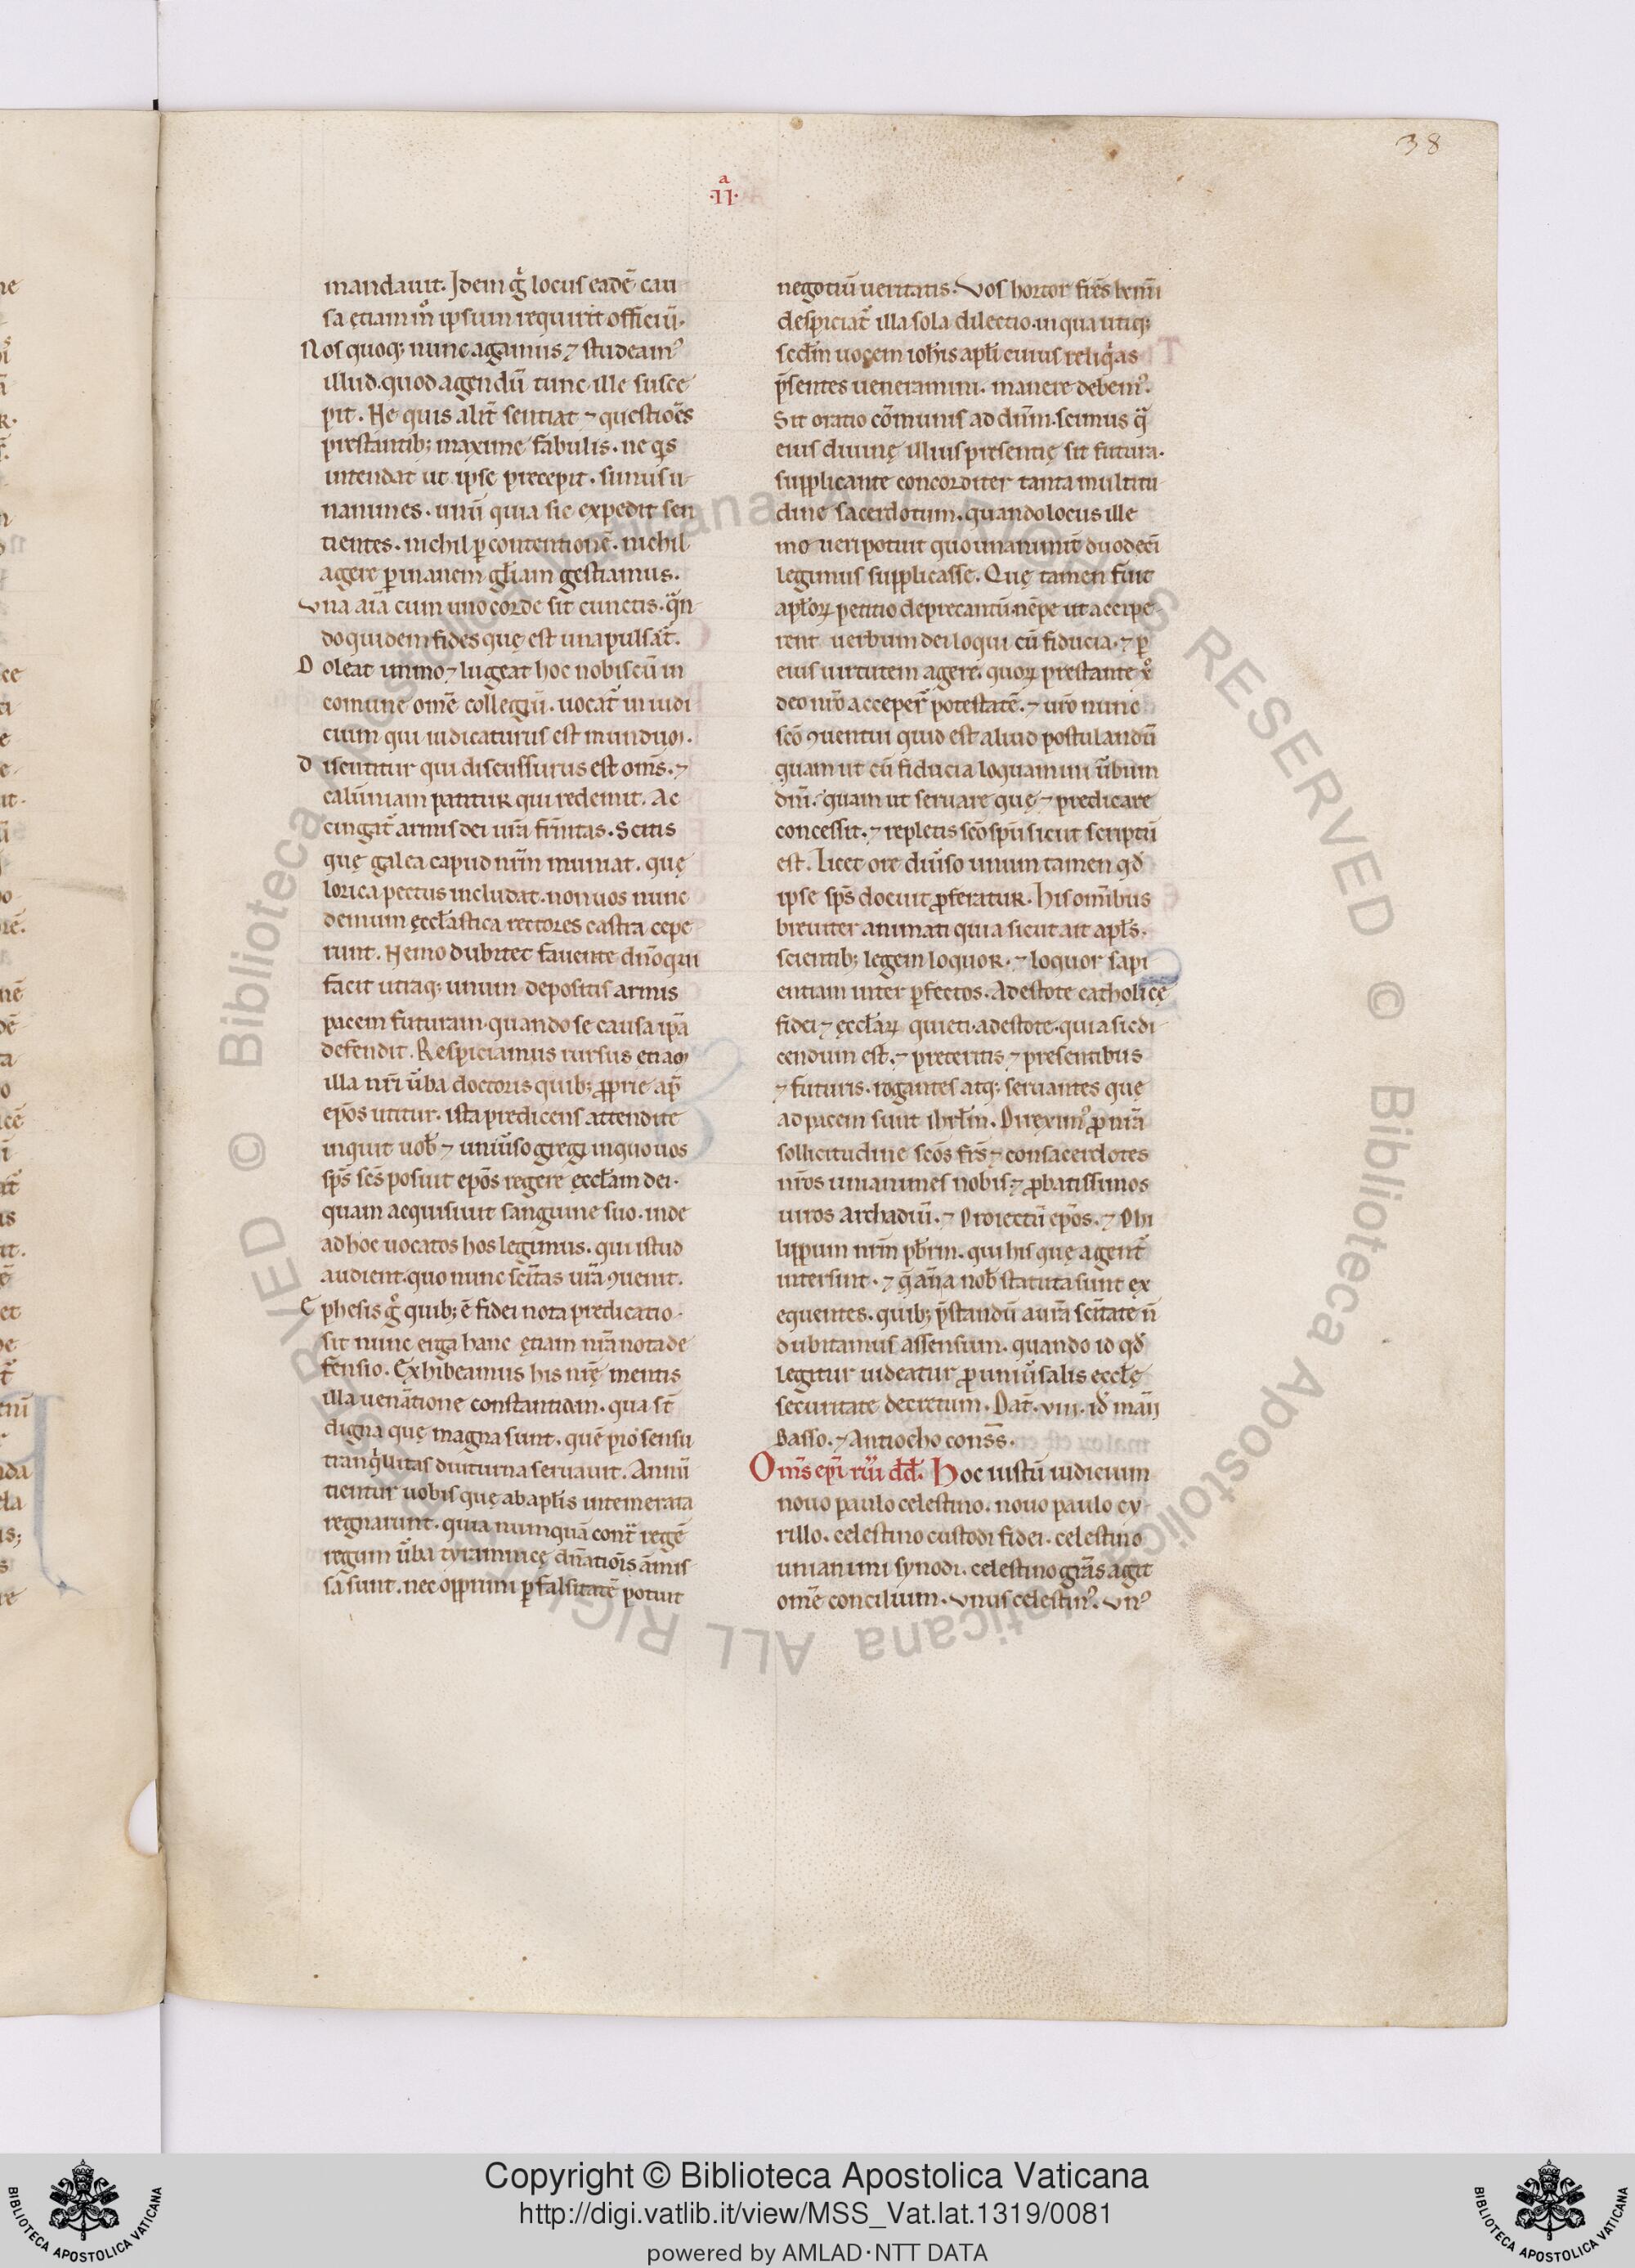 38
a
·II·
mandauit. Idem gͥ locus eadē cau
sa etiam m̊ ipsum requirit officiū.
Nos quoq; nunc agamus ⁊ studeamꝰ
illud. quod agendū tunc ille susce
pit. Ne quis alit̄ sentiat ⁊ questiōes
prestantib; maxime fabulis. ne qͥs
intendat ut ipse precepit. simus u
nanimes. unū quia sic expedit sen
tientes. nichil ꝑ contentionē. nichil
agere ꝑ inanem gl̄iam gestiamus.
Vna aīa cum uno corde sit cunctis. qn̄
do quidem fides que est una pulsat᷑.
Doleat immo ⁊ lugeat hoc nobiscū in
comune om̄e collegiū. uocat᷑ in iudi
cium qui iudicaturus est mundum.
Discutitur qui discussurus est om̄s. ⁊
calūniam patitur qui redemit. Ac
cingat᷑ armis dei ur̄a fr̄nitas. Scitis
quę galea capud nr̄m muniat. quę
lorica pectus includat. non uos nunc
demum ęccl̄astica rectores castra cepe
runt. Nemo dubitet fauente dn̄o qui
facit utraq; unum depositis armis
pacem futuram. quando se causa ip̄a
defendit. Respiciamus rursus etiam
illa nr̄i ūba doctoris quib; ꝓprie ap̄
ep̄os utitur. ista predicens attendite
inquit uob̄ ⁊ uniūso gregi in quo uos
sp̄s sc̄s posuit ep̄os regere ęccl̄am dei.
quam acquisiuit sanguine suo. inde
ad hoc uocatos hos legimus. qui istud
audient. quo nunc sc̄itas ur̄a ꝯuenit.
Ephesis gͦ quib; ē fidei nota predicatio.
sit nunc erga hanc ętiam nr̄a nota de
fensio. Exhibeamus his nr̄ę mentis
illa uen̄atione constantiam. qua st̄
digna quę magna sunt. quē pro sensu
tranqͥllitas diuturna seruauit. Annū
tientur uobis quę ab apl̄is intemerata
regnarunt. quia numquā cont᷑ regē
regum ūba tyrannicę dn̄atiōis āmis
sa sunt. nec opprimi ꝑ falsitatē potuit
negotiū ueritatis. Vos hortor fr̄es
despiciat᷑ illa sola dilectio. in qua utiq;
scd̄m uocem ioh̄is apl̄i cuius reliqͥas
p̄sentes ueneramini. manere debemꝰ.
Sit oratio cōmunis ad dn̄m. scimus q̄
eius diuinę illius presentię sit futura.
supplicante concorditer tanta multitu
dine sacerdotum. quando locus ille
moueri potuit quo unanimit̄ duodeci
legimus supplicasse. Quę tamen fuit
apl̄oꝝ petitio deprecantū. nēpe ut accipe
rent uerbum dei loqui cū fiducia. ⁊ ꝑ
eius uirtutem agere. quoꝝ prestante xͦ
deo nr̄o acceper᷑ potestatē. ⁊ ur̄o nunc
sc̄o ꝯuentui quid est aliud postulandū
quam ut cū fiducia loquamini ūbum
dn̄i. quam ut seruare quę ⁊ predicare
concessit. ⁊ repletis sc̄o sp̄u sicut scriptū
est. Licet ore diūso unum tamen qd̄
ipse sp̄s docuit ꝓferatur. His om̄ibus
breuiter animati quia sicut ait apl̄s.
scientib; legem loquor. ⁊ loquor sapi
entiam inter ꝑfectos. Adestote catholicę
fidei ⁊ ęccl̄aꝝ quieti. adestote. quia sic di
cendum est. ⁊ preteritis ⁊ presentibus
⁊ futuris. rogantes atq; seruantes quę
ad pacem sunt ihrl̄m. Direximꝰ ꝓ nr̄a
sollicitudine sc̄os fr̄s ⁊ consacerdotes
nr̄os unanimes nobis. ⁊ ꝓbatissimos
uiros Archadiū. ⁊ Proiectū ep̄os. ⁊ Phi
lippum nr̄m pb̄rm. qui his quę agent᷑
intersint. ⁊ q̄ an̄a nob̄ statuta sunt ex
equentes. quib; p̄standū a ur̄a sc̄itate n̄
dubitamus assensum. quando id qd̄
legitur uideatur ꝓ uniūsalis eccl̄ę
securitate decretum. Dat̄. viii. id̄ maii
Basso. ⁊ Antiocho cons̄s.
Om̄s ep̄i rūi dd̄. Hoc iustū iudicium
nouo paulo celestino. nouo paulo cy
rillo. celestino custodi fidei. celestino
unanimi synodi. celestino gr̄as agit
om̄e concilium. Vnus celestinꝰ. Vnꝰ
Copyright © Biblioteca Apostolica Vaticana
http://digi.vatlib.it/view/MSS_Vat.lat.1319/0081
powered by AMLAD·NTT DATA
BIBLIOTECA APOSTOLICA VATICANA
BIBLIOTECA APOSTOLICA VATICANA